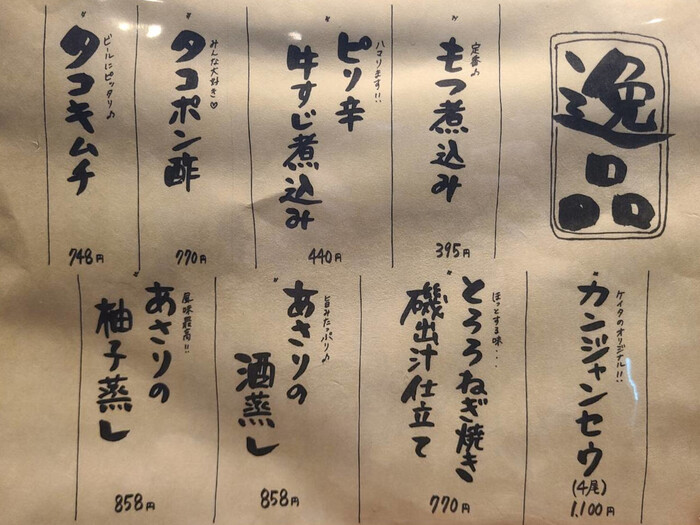 逸品
定番♪
もつ煮込み
395円
ハマります!!
ピリ辛
牛すじ煮込み
440円
みんな大好き♡
タコポン酢
770円
ビールにピッタリ♪
タコキムチ
748円
ケイタのオリジナル!!
カンジャンセウ
(4尾)
1,100円
ほっとする味・・・
とろろねぎ焼き
磯出汁仕立て
770円
旨みたっぷり♪
あさりの
酒蒸し
858円
風味最高!!
あさりの
柚子蒸し
858円